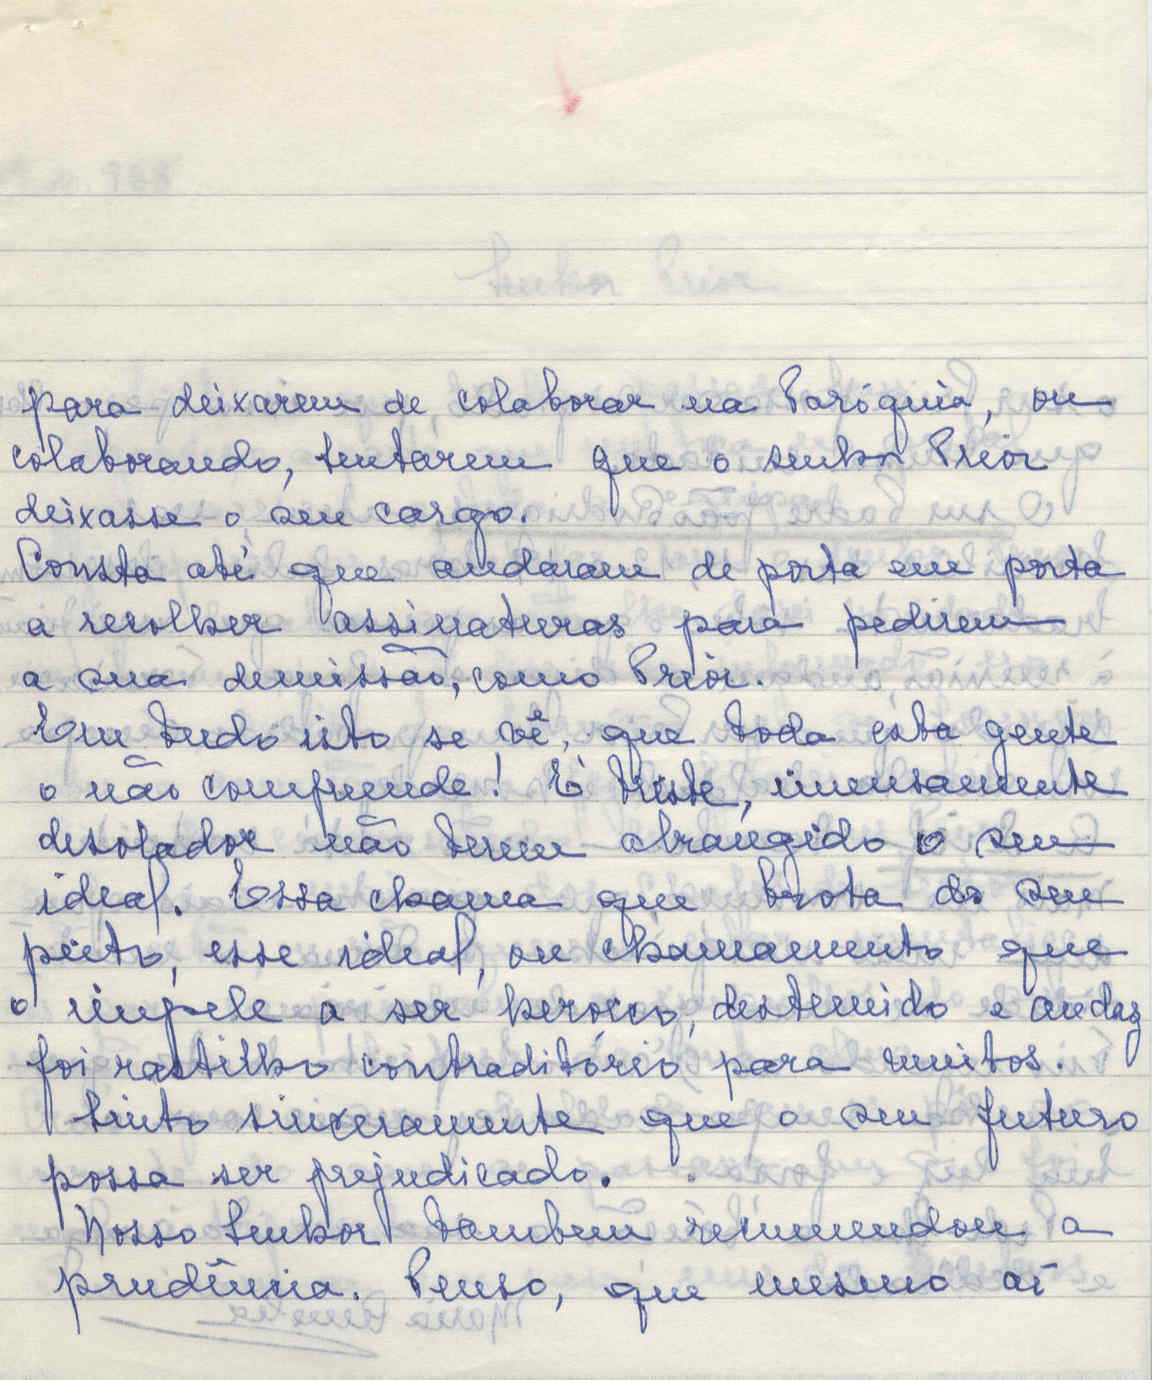 para deixarem de colaborar na Paróquia, ou
colaborando, tentarem que o senhor Prior
deixasse o seu cargo.
Consta até que andaram de porta em porta
a recolher assinaturas para pedirem
a sua demissão, como Prior.
Em tudo isto se vê, que toda esta gente
o não compreende! É triste, imensamente
desolador não terem abrangido o seu
ideal. Essa chama que brota do seu
peito, esse ideal, ou chamamento que
o impele a ser heroico, destemido e audaz
foi rastilho contraditório para muitos.
Sinto sinceramente que o seu futuro
possa ser prejudicado.
Nosso Senhor tambem recomendou a
prudência. Penso, que mesmo aí
Senhor Prior